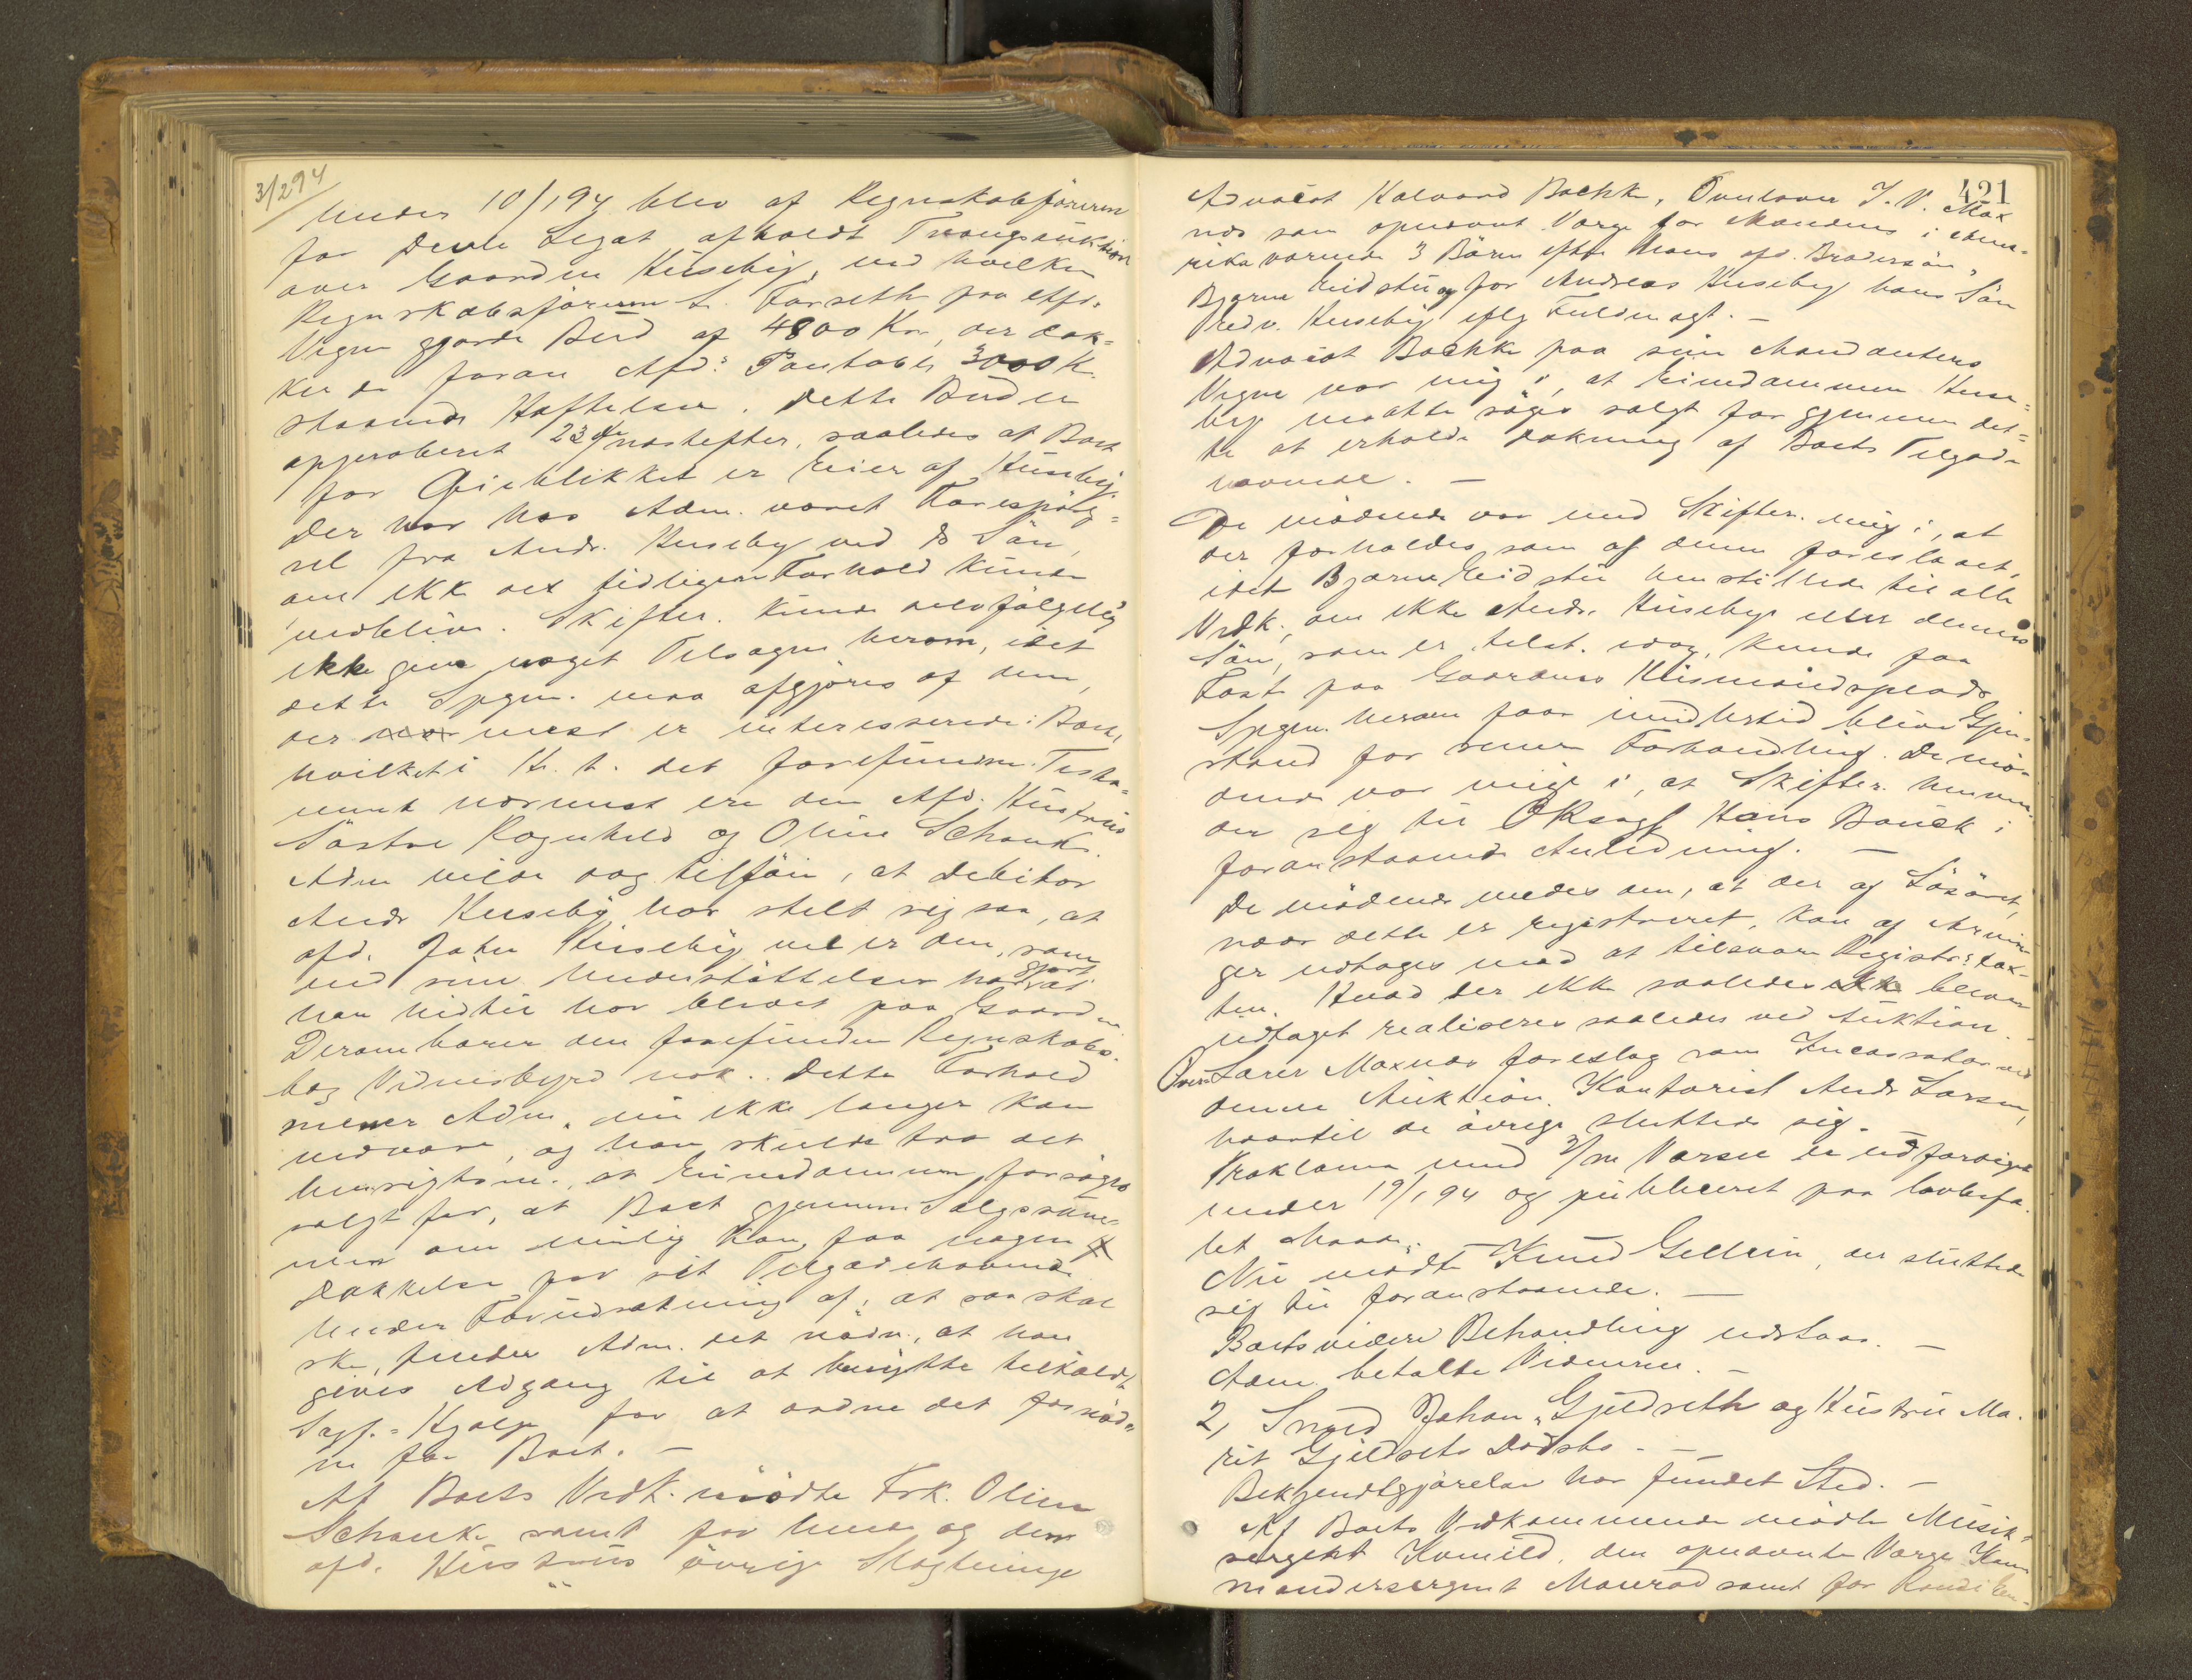 3/294
Under 10/1 94 blev af Regnskabsføreren
for Devle Legat afholdt Tvangsauktion
over Gaarden Huseby, ved hvilken
Regnskabsføreren L. Forseth paa Afd.
Vegne gjorde Bud af 4800 Kr, der dæk-
ker de foran Afd.s Pantobl. 3000 K.
staaende Heftelser. Dette Bud er
approberet 23 næstefter, saaledes at Boet
for Øieblikket er Eier af Huseby.
Der har hos Adm. været Forespørg-
sel fra Andr. Huseby ved ds Søn,
om ikke det tidligere Forhold kunde
vedblive. Skifter. kunde selvfølgelig
ikke give noget Tilsagn herom, idet
dette Spgm. maa afgjøres af dem,
der mest er interesserede i Boet,
hvilket i H. t. det forefundne Testa-
ment nærmest er den Afd. Hustrus
Søstre Ragnhild og Oline Schanke.
Adm vilde dog tilføie, at Debitor
Andr Huseby har stelt sig saa, at
afd. John Huseby vel er den, som
ved sine Understøttelser har gjort at
han hidtil har blevet paa Gaarden
Derom bærer den forefundne Regnskabs-
bog Vidnesbyrd nok. Dette Forhold
mener Adm. nu ikke længer kan
vedvare, og han skulde tro det
hensigtsm., at Eiendommen forsøges
solgt for, at Boet gjennem Salgssum-
men om mulig kan faa nogen
Dækkelse for sit Tilgodehavende
Under Forudsætning af, at saa skal
ske, finder Adm. det nødv., at han
gives Adgang til at benytte tilkaldt
Sagf.-Hjælp for at ordne det fornød-
ne for Boet. —
Af Boets Vedk. mødte Frk. Oline
Schanke samt for hende og den
afd. Hustrus øvrige Slægtninge
421
Advocat Halvard Bachke, Overlærer J. V. Max
næs som opnævnt Værge for Mandens i Ame-
rika værende 3 Børn efter hans afd. Brodersøn,
Bjarne Eidstu og for Andreas Huseby hans Søn
Predv. Huseby iflg Fuldmagt. —
Advocat Bachke paa sine Mandanters
Vegne var enig i, at Eiendommen Huse-
by maatte søges solgt for gjennem det-
te at erholde Dækning af Boets Tilgode
havende. —
De mødende var med Skifter. enig i, at
der forholdes som af denne foreslaaet,
idet Bjarne Eidstu henstillede til alle
Vedk., om ikke Andr. Huseby eller dennes
Søn, som er tilst. idag, kunde faa
Fæst paa Gaardens Husmandsplads
Spgm. herom faar imidlertid blive Gjen-
stand for senere Forhandling. De mø-
dende var enige i, at Skifter. henven-
der sig til ORsagf Hans Bauck i
foranstaaende Anledning. —
De mødende enedes om, at der af Løsøret,
naar dette er registreret, kan af Arvin
ger udtages mod at tilsvare Registr.s tax-
ten. Hvad der ikke saaledes bliver
udtaget realiseres saaledes ved Auktion.
OverLærer Maxnæs foreslog som Incassator ved
denne Auktion Kontorist Andr Larsen,
hvortil de øvrige sluttede sig.
Proklama med 3/m Varsel er udfærdiget
under 19/1 94 og publiceret paa lovbefa-
let Maade. —
Nu mødte Knud Gellein, der sluttede
sig til foranstaaende. —
Boets videre Behandling udstaar. —
Adm. betalte Vidnerne. —
2, Smed Johan Gjeldseth og Hustru Ma-
rit Gjeldseths Dødsbo. —
Bekjendtgjørelse har fundet Sted. —
Af Boets Vedkommende mødte Musik-
sergeant Kvmild, den opnævnte Værge Kom
mandersergent Monrad samt for Randi